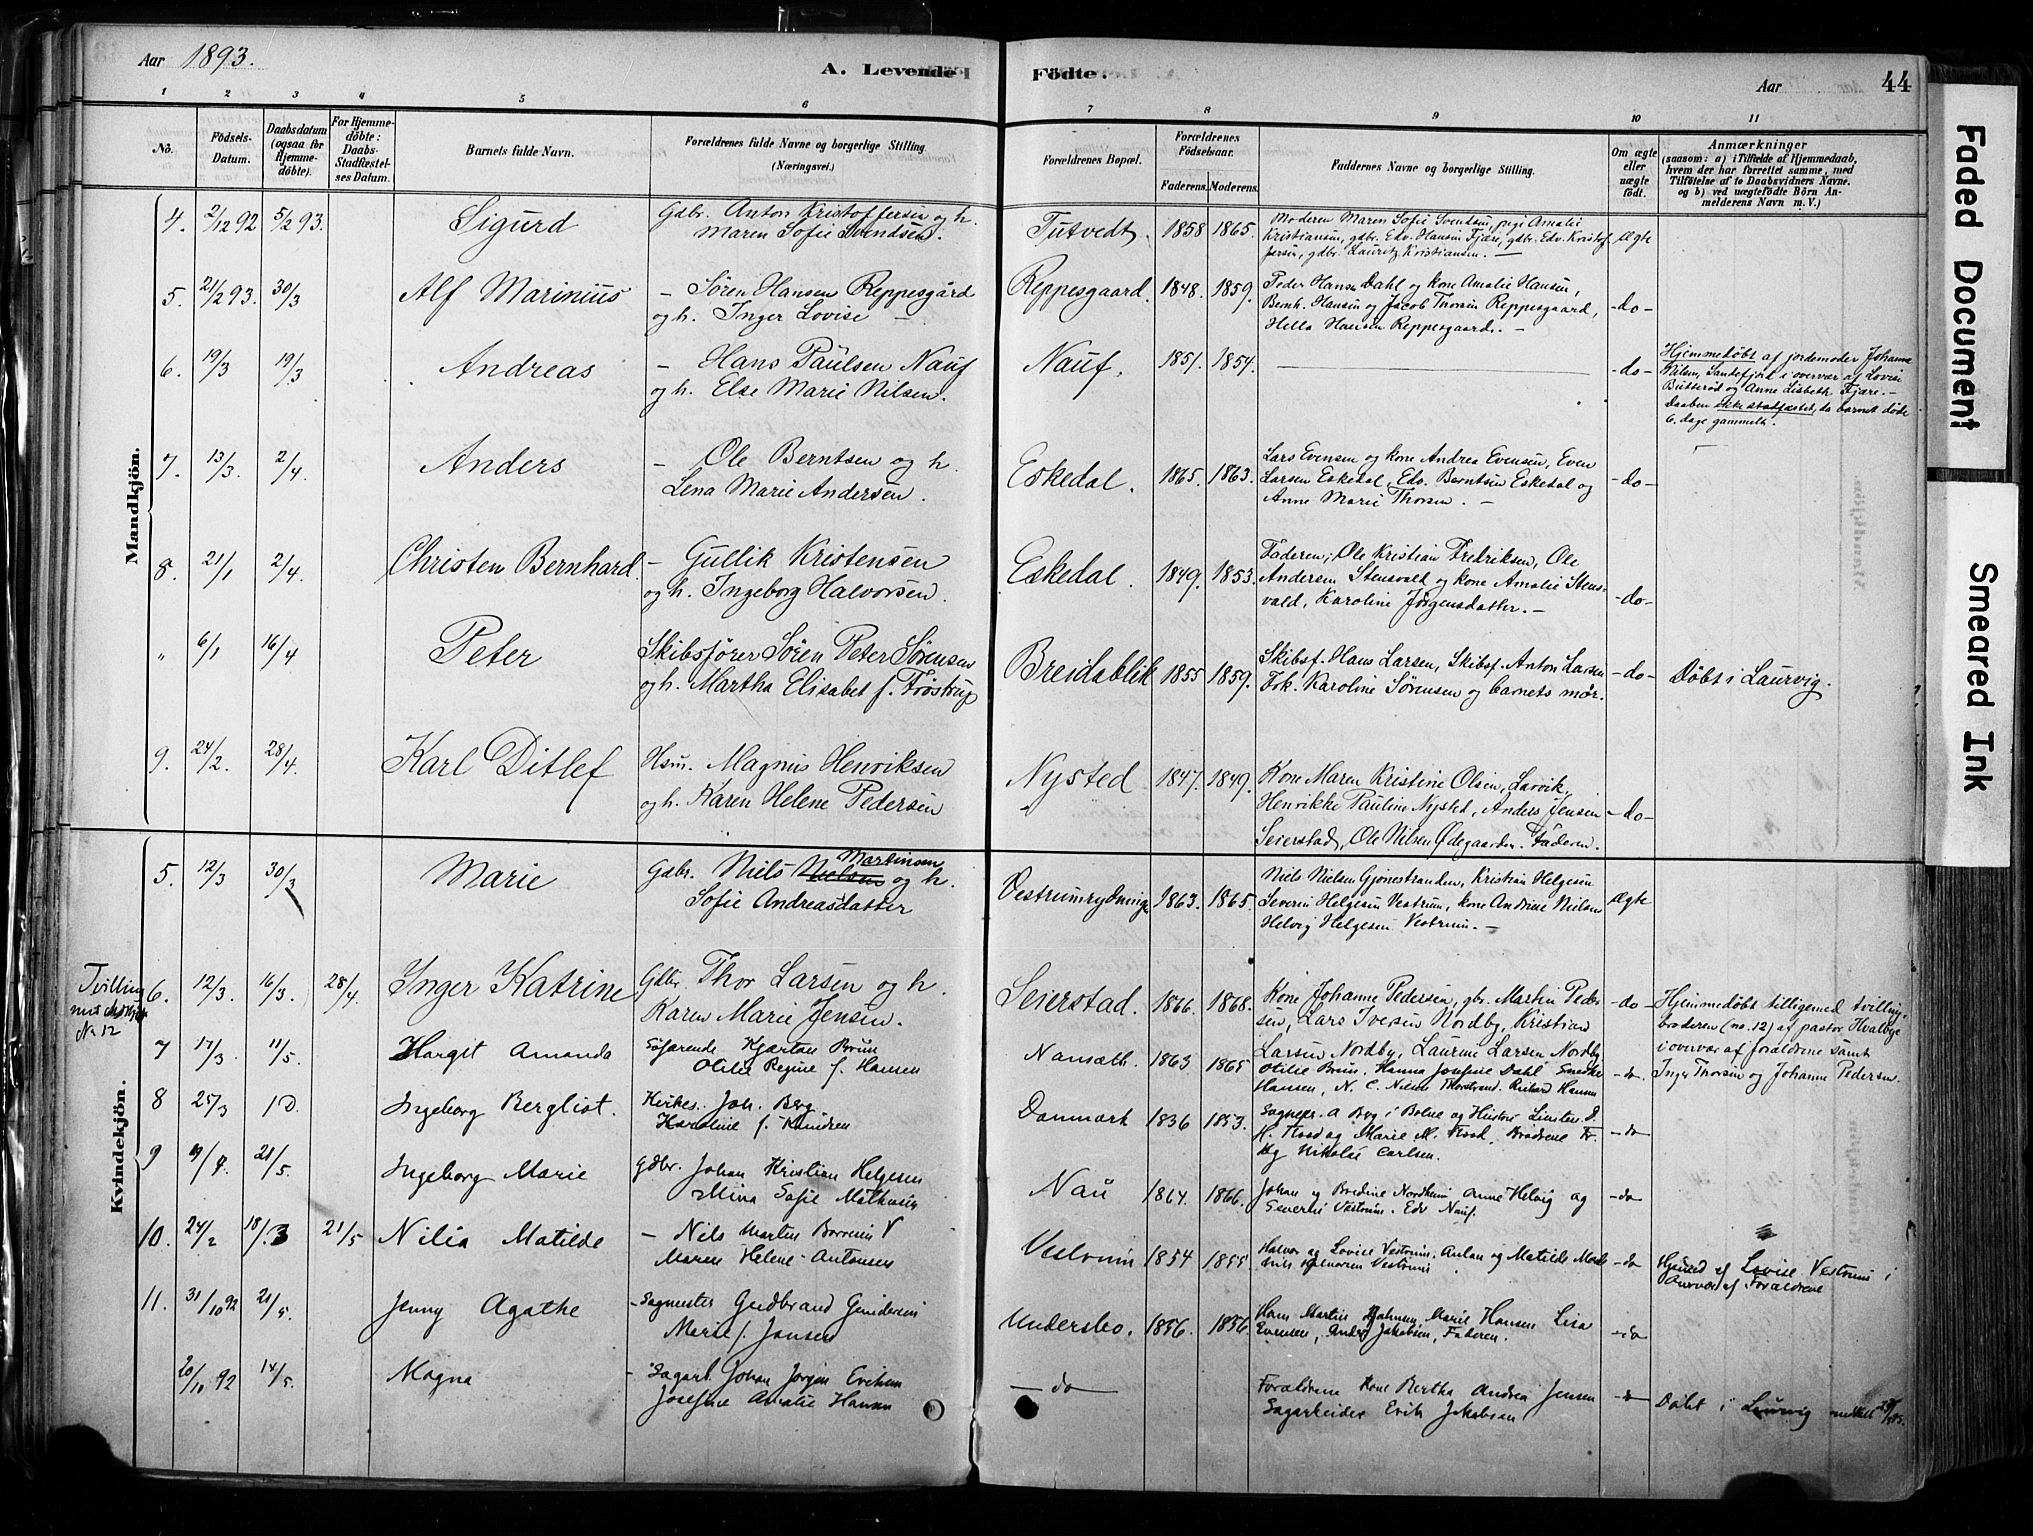 Aar 1893. A. Levende Födte. Aar 44
1 2 3 4 5 6 7 8 9 10 11
No. Födsels-Datum. Daabsdatum (ogsaa for Hjemmedöbte). For Hjemmedöbte: Daabs-Stadfæstelses Datum. Barnets fulde Navn. Forældrenes fulde Navne og borgerlige Stilling. (Næringsvei.) Forældrenes Bopæl. Forældrenes Födselsaar. Faderens. Moderens. Faddernes Navne og borgerlige Stilling. Om ægte eller uægte födt. Anmærkninger (saasom: a) i Tilfælde af Hjemmedaab, hvem der har forrettet samme, med Tilföielse af to Daabsvidners Navne, og b) ved uægtefödte Börn Anmelderens Navn m. V.)
Mandkjön.
4. 2/12 92 5/2 93. Sigurd Gdbr. Anton Kristoffersen og h. Tutvedt. 1858 1865. Moderen Maren Sofie Svendsen, pige Amalie
Maren Sofie Svendsen. Kristiansen, gdbr. Edv. Hansen Fjære, gdbr. Edv. Kristof- Ægte
fersen, gdbr. Lauritz Kristiansen. —
5. 21/2 93. 30/3 Alf Marinius — Søren Hansen Reppesgård Reppesgaard. 1848. 1859. Peder Hansen Dahl og kone Amalie Hansen,
og h. Inger Lovise — Bernh. Hansen og Jacob Thorsen Reppesgaard, -do-
Hella Hansen Reppesgaard. —
6. 19/3 19/3 Andreas — Hans Paulsen Nauf Nauf. 1851. 1854. -do- Hjemmedøbt af jordemoder Johanne
og h. Else Marie Nilsen. Nilsen, Sandefjord i overvær af Lovise
Butterød og Anne Lisbeth Fjære. —
Daaben ikke stadfæstet, da barnet døde
6. dage gammelt.
7. 13/3. 2/4. Anders — Ole Berntsen og h. Eskedal. 1865. 1863. Lars Evensen og kone Andrea Evensen, Even
Lena Marie Andersen. Larsen Eskedal, Edv. Berntsen Eskedal og -do-
Anne Marie Thorsen. —
8. 21/1 2/4. Christen Bernhard — Gullik Kristensen Eskedal. 1849. 1853. Faderen, Ole Kristian Fredriksen, Ole
og h. Ingeborg Halvorsen. Andersen Stensvald og kone Amalie Stens- -do-
vald, Karoline Jørgensdatter. —
" 6/1 16/4 Peter Skibsfører Søren Peter Sørensen Breidablik 1855 1859. Skibsf. Hans Larsen, Skibsf. Anton Larsen -do- Døbt i Laurvig.
og h. Martha Elisabet f. Frøstrup Frk. Karoline Sørensen og barnets mor.
9. 24/2. 28/4. Karl Ditlef Hsm. Magnus Henriksen Nysted 1847. 1849. Kone Maren Kristine Olsen, Larvik,
og h. Karen Helene Pedersen Henrikke Pauline Nysted, Anders Jensen -do-
Seierstad, Ole Nilsen Ødegaarden. Faderen.
Kvindekjön.
5. 12/3 30/3 Marie Gdbr. Niels Martinsen og h. Vestrumrydningen 1863. 1865. Niels Nielsen Gjønestranden, Kristian Helgesen
Sofie Andreasdatter Severin Helgesen Vestrum, kone Andrine Nielsen Ægte
Helvig Helgesen Vestrum. —
Tvilling
No 12
6. 12/3. 16/3. 28/4. Inger Katrine Gdbr. Thor Larsen og h. Seierstad. 1866. 1868. Kone Johanne Pedersen, gbr. Martin Peder- -do- Hjemmedøbt tilligemed tvilling-
Karen Marie Jensen. sen, Lars Iversen Nordby, Kristian broderen (no. 12) af pastor Hvalbye
Larsen Nordby, Laurine Larsen Nordby i overvær af forældrene samt
Inger Thorsen og Johanne Pedersen.
7 17/3 11/5. Margit Amanda Søfarende Kjartan Bruun Nansæth. 1863 1865 Otilie Bruun, Hanna Josefine Dahl, -do-
Otilie Regine f. Hansen Hansen, N. C. Nilsen
8 25/3 Do. Ingeborg Bergliot. Kirkes. Joh. Berg Danmark 1836 1853. -do
Karoline f. Knudsen H. Flood og Marie M. Flood, Brødrene Fr.
og Nikolai Carlsen.
9 21/5. Ingeborg Marie Gdbr. Johan Kristian Helgesen Nau 1864. 1866. Johan og Bredine Nordheim Anne Helvig og -do
Mina Sofie Mathisen Severin Vestrum. Edv Nauf.
10. 24/2 18/3 21/5 Nilia Matilde — Nils Martin V Vestrum 1854 Halvor og Lovise Vestrum. Anton og Matilde -do Hjemmed af Lovise Vestrum i
Maren Helene Antonsen Vestrum Forældrene
11. 31/10 92 21/5. Jenny Agathe — Sagmester Gudbrand Gundersen Undersbo. 1856. 1856. Hans Martin Marie Hansen Lisa
Marie f. Jansen Evensen, Jakobsen, Faderen. -do
20/10 92 14/5. Magna — Sagarb. Johan Jørgen Eriksen — do — Forældrene Kone Bertha Andrea Jensen do Døbt i Laurvig
Josefine Amalie Hansen Sagarbeider Erik Jakobsen
Faded Document
Smeared Ink